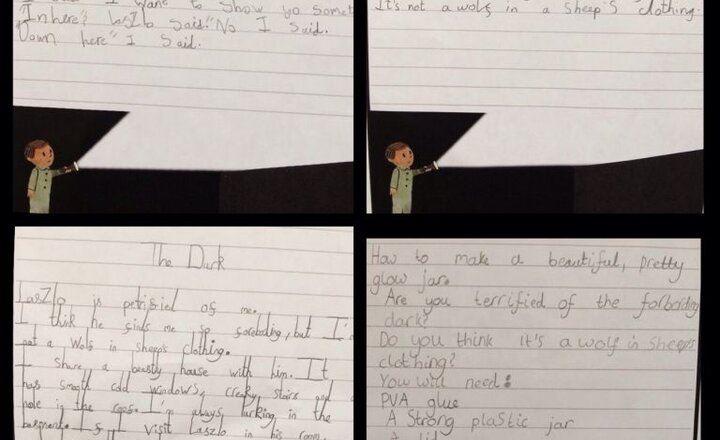 I want to Show yo Somet
"In here? laSZlo Said."No I Said.
Down here" I Said.
It's not a wolf in a Sheep'S clothing.
The Dark
LasZlo is petrified of me.
I think he finds me so foreboding, but I'm
not a Wolf in sheeps clothing.
I Share a beasty house with him. It
has smooth cold windows, creaky stairs and a
hole in the roof. I'm always lurking in the
basment. If I visit Laszlo in his room,
How to make a beautiful, pretty
glow jar.
Are you terrified of the forboding
dark?
Do you think it's a wolf in Sheeps
clothing?
You will need:
PVA glue
A Strong plastic jar
A lid